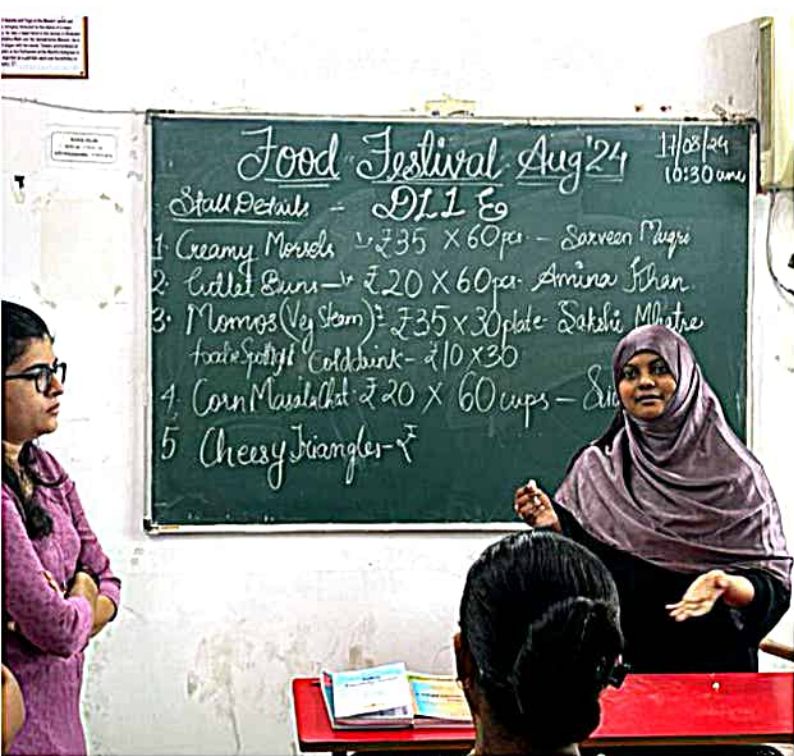 Food Festival Aug'24
17/08/24
10:30 am
Stall Details - DLLE
1. Creamy Morsels ₹35 X 60pcs - Sarveen Mugri
2. Cutlet Buns - ₹20 X 60pcs - Amina Khan.
3. Momos (Veg Steam) ₹35 x 30 plate - Sakshi Mhatre
Cold drink - ₹10 X 30
4. Corn Masala Chat - ₹20 X 60 cups -
5 Cheesy Triangles - ₹